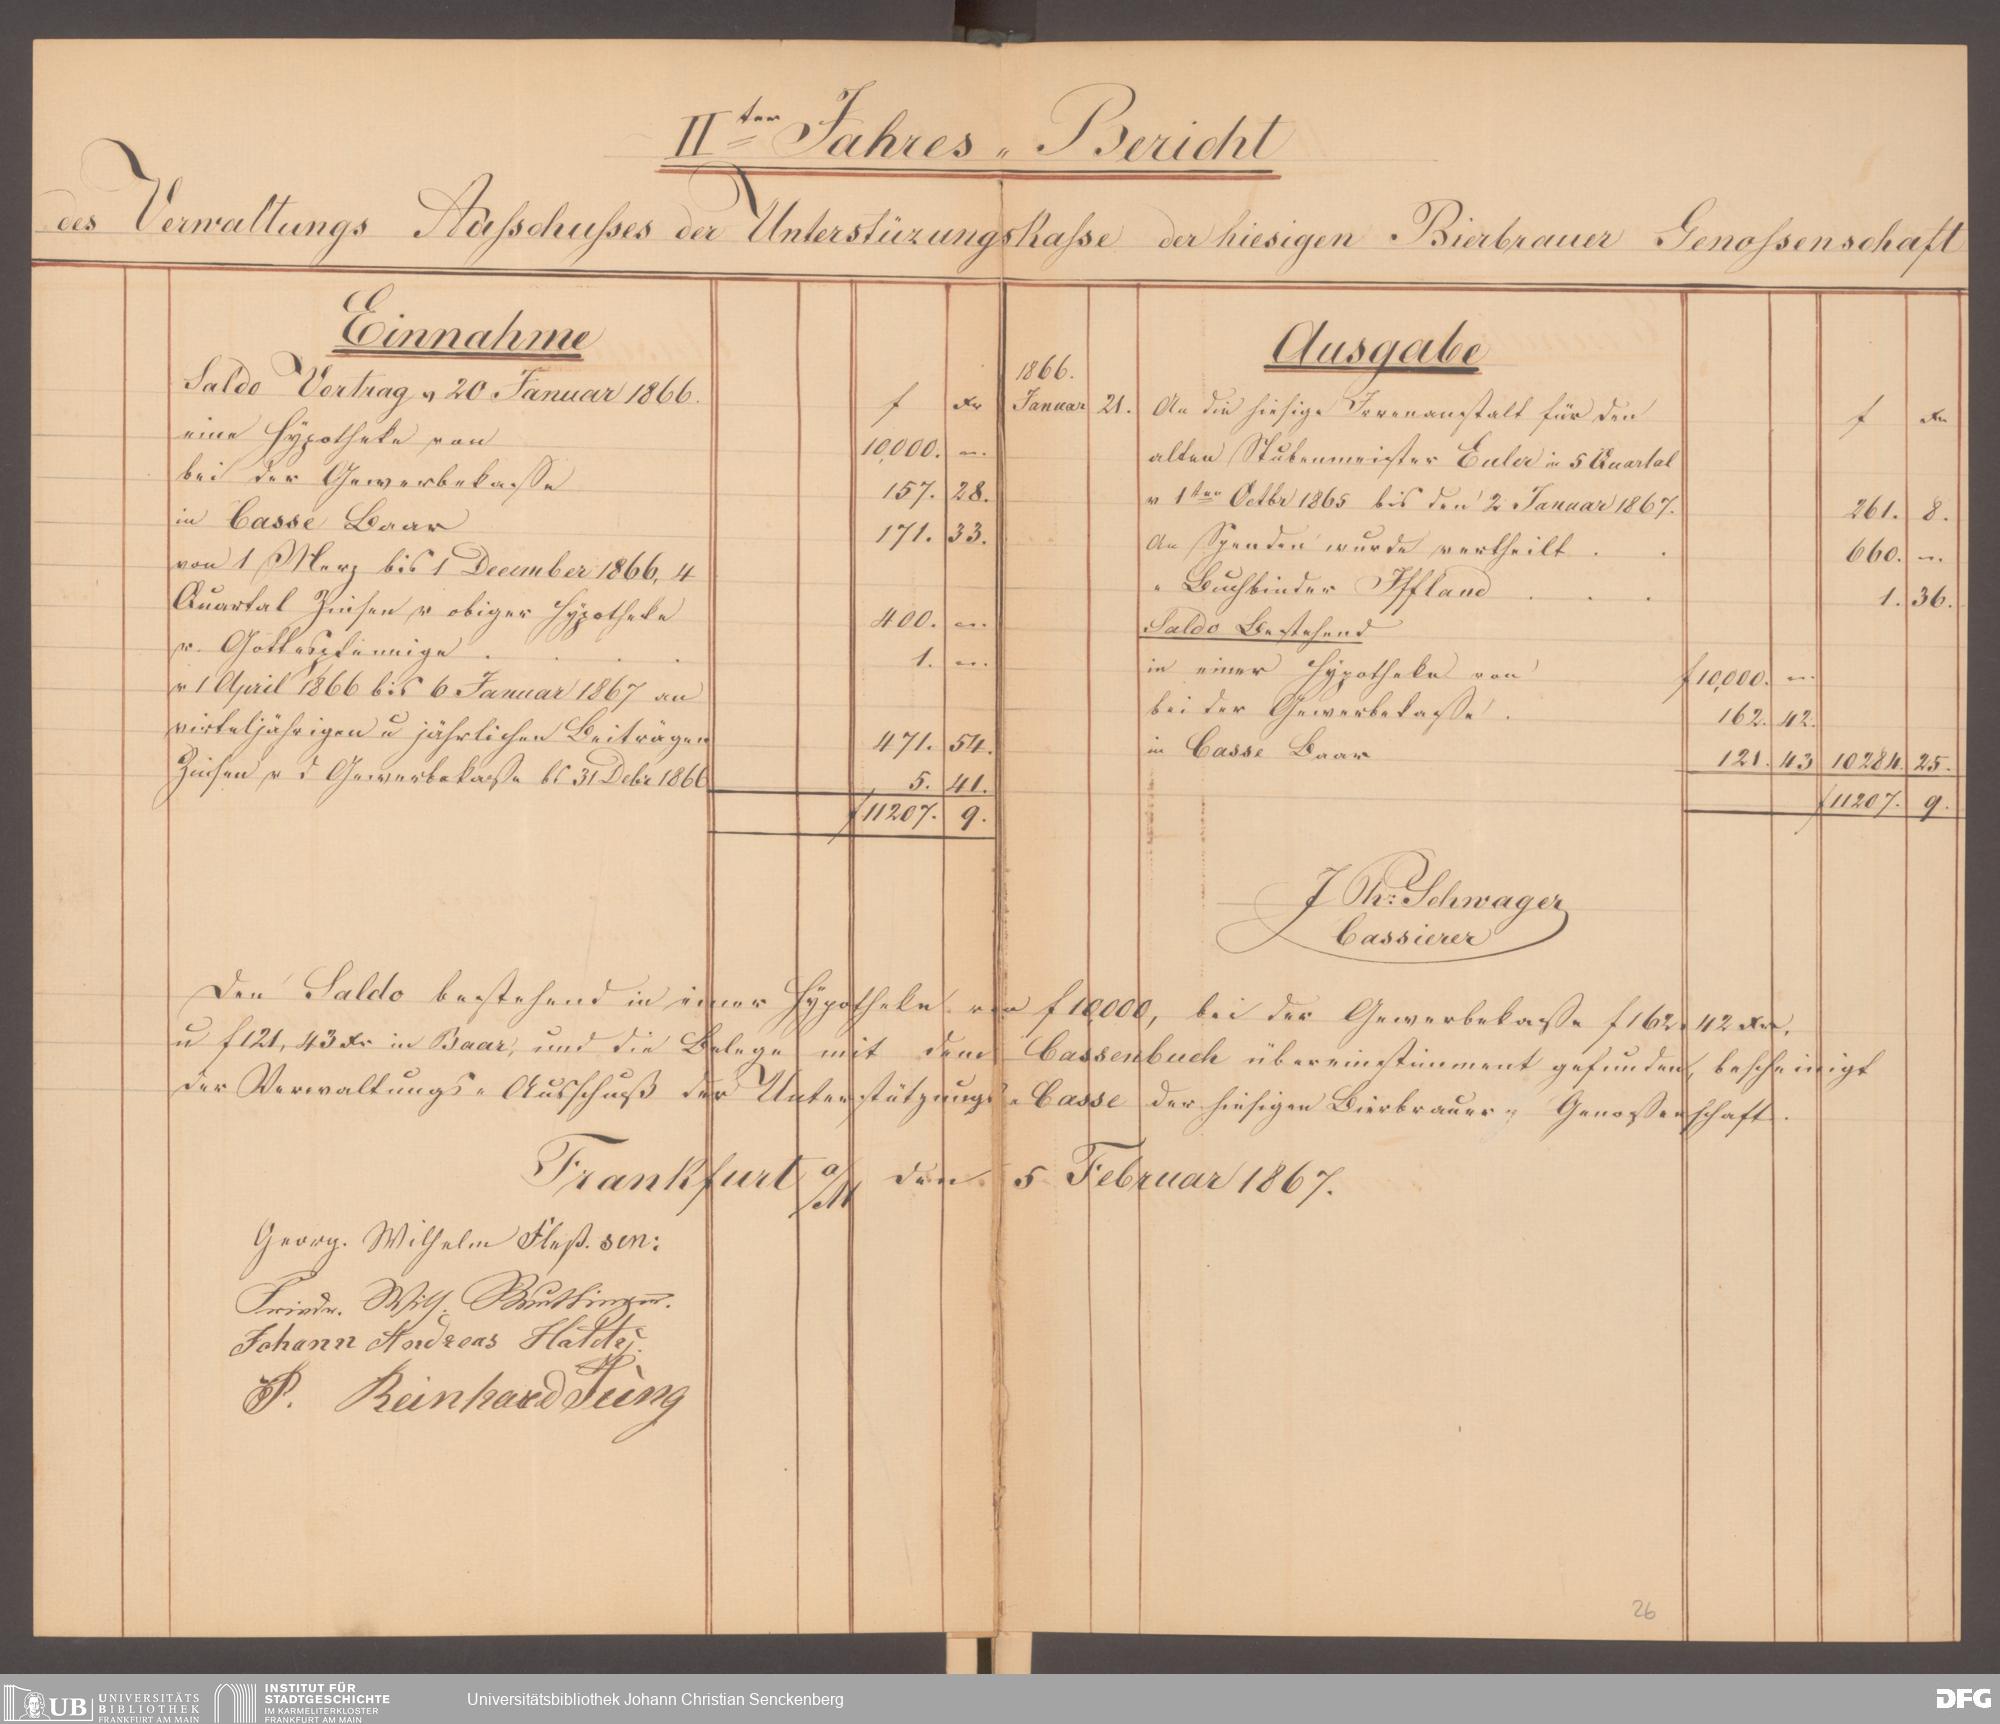 IIter Jahres „ Bericht
des Verwaltungs Aüsschusses der Unterstüzungskasse der hiesigen Bierbrauer Genossenschaft
Einnahme
Saldo Vortrag v 20 Januar 1866.
f Xr
eine Hÿpotheke von 10,000. —.
bei der Gewerbekasse 157. 28.
in Casse Baar 171. 33.
von 1 Merz bis 1 December 1866, 4
Quartal Zinsen v obiger Hÿpotheke 400. —.
v. Gottespfennige . . . . 1. —.
v 1 April 1866 bis 6 Januar 1867 an
virteljährigen u jährlichen Beiträgen 471. 54.
Zinsen v d Gewerbekasse bs 31 Debr 1866 5. 41.
f 11207. 9.
Ausgabe
1866.
Januar 21. An die hiesige Irrenanstalt für den f Xr
alten Stubenmeister Euler in 5 Quartal
v 1ten Octbr 1865 bis den 2 Januar 1867. 261. 8.
An Spenden wurde vertheilt . . 660. —.
„ Buchbinder Iffland . . . 1. 36.
Saldo Bestehend
in einer Hypotheke von f 10,000. —.
bei der Gewerbekasse . 162. 42.
in Casse Baar 121. 43 10284. 25.
f 11207. 9.
J Ph: Schwager
Cassierer
Den Saldo bestehend in einer Hÿpotheke von f 10,000, bei der Gewerbekasse f 162. 42 Xr,
u f 121, 43 Xr in Baar, und die Belege mit dem Cassenbuch übereinstimment gefunden, bescheinigt
der Verwaltungs „ Ausschuß der Unterstützungs „ Casse der hiesigen Bierbrauer „ Genossenschaft.
Frankfurt a/M den 5 Februar 1867.
Georg. Wilhelm Fleß. sen:
Friedr. Wilh.
Johann Andreas
P. Reinhard Jung
26
UB UNIVERSITÄTS
BIBLIOTHEK
FRANKFURT AM MAIN
INSTITUT FÜR
STADTGESCHICHTE
IM KARMELITERKLOSTER
FRANKFURT AM MAIN
Universitätsbibliothek Johann Christian Senckenberg
DFG